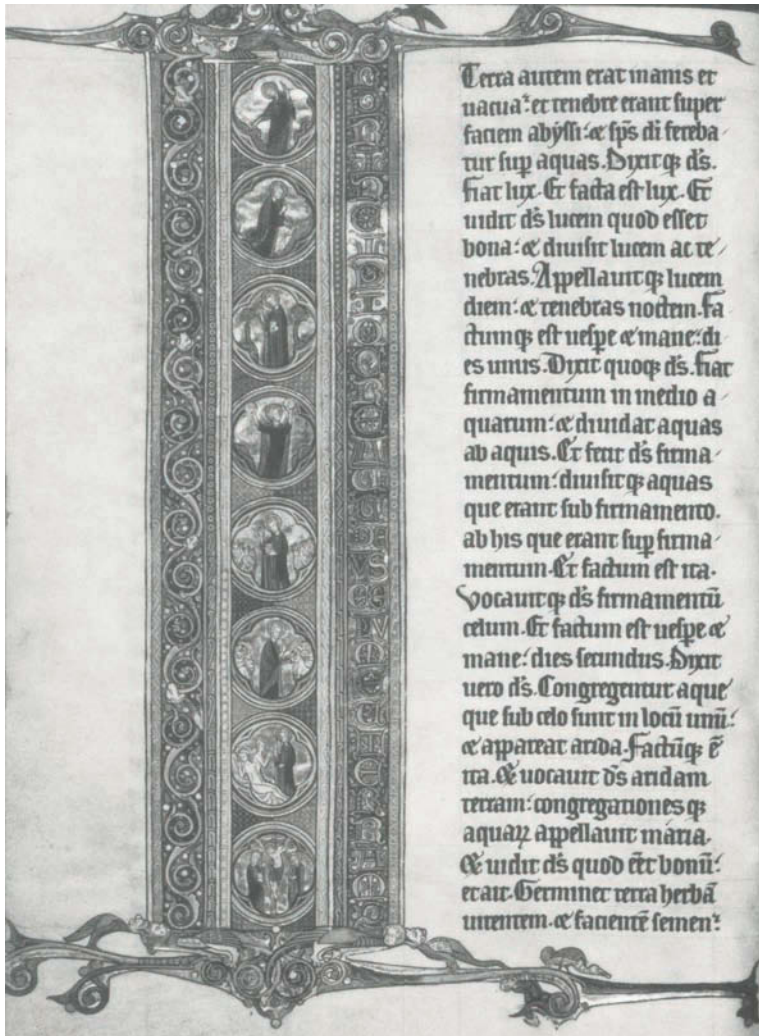 IN PRINCIPIO CREAVIT DEVS CELVM ET TERRAM
Terra autem erat inanis et
uacua: et tenebre erant super
faciem abyssi: ⁊ sp̄s dī fereba-
tur sup̱ aquas. Dixitq; ds̄.
Fiat lux. Et facta est lux. Et
uidit ds̄ lucem quod esset
bona: ⁊ diuisit lucem ac te-
nebras. Appellauitq; lucem
diem: ⁊ tenebras noctem. Fa
ctumq; est uesp̱e ⁊ mane: di
es unus. Dixit quoq; ds̄. Fiat
firmamentum in medio a-
quarum: ⁊ diuidat aquas
ab aquis. Et fecit ds̄ firma-
mentum: diuisitq; aquas
que erant sub firmamento.
ab his que erant sup̱ firma-
mentum. Et factum est ita.
Vocauitq; ds̄ firmamentū
celum. Et factum est uesp̱e ⁊
mane: dies secundus. Dixit
uero ds̄. Congregentur aque
que sub celo sunt in locū unū:
⁊ appareat arida. Factūq; ē
ita. Et uocauit ds̄ aridam
terram: congregationes q;
aquaꝝ appellauit maria.
Et uidit ds̄ quod eēt bonū:
et ait. Germinet terra herbā
uirentem. ⁊ facientē semen: